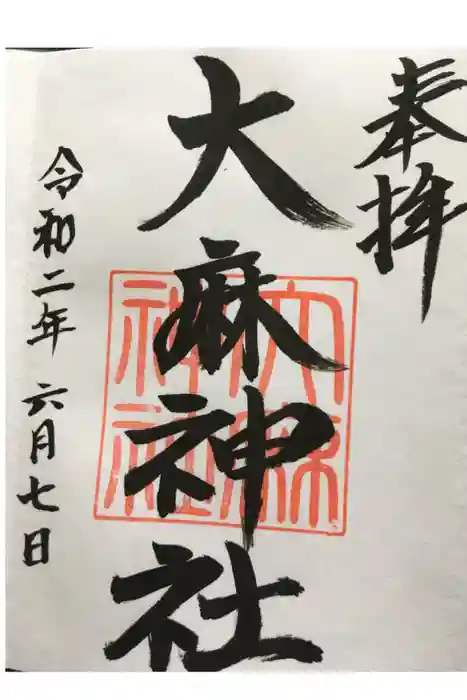 奉拝
大麻神社
大麻
神社
令和二年 六月七日